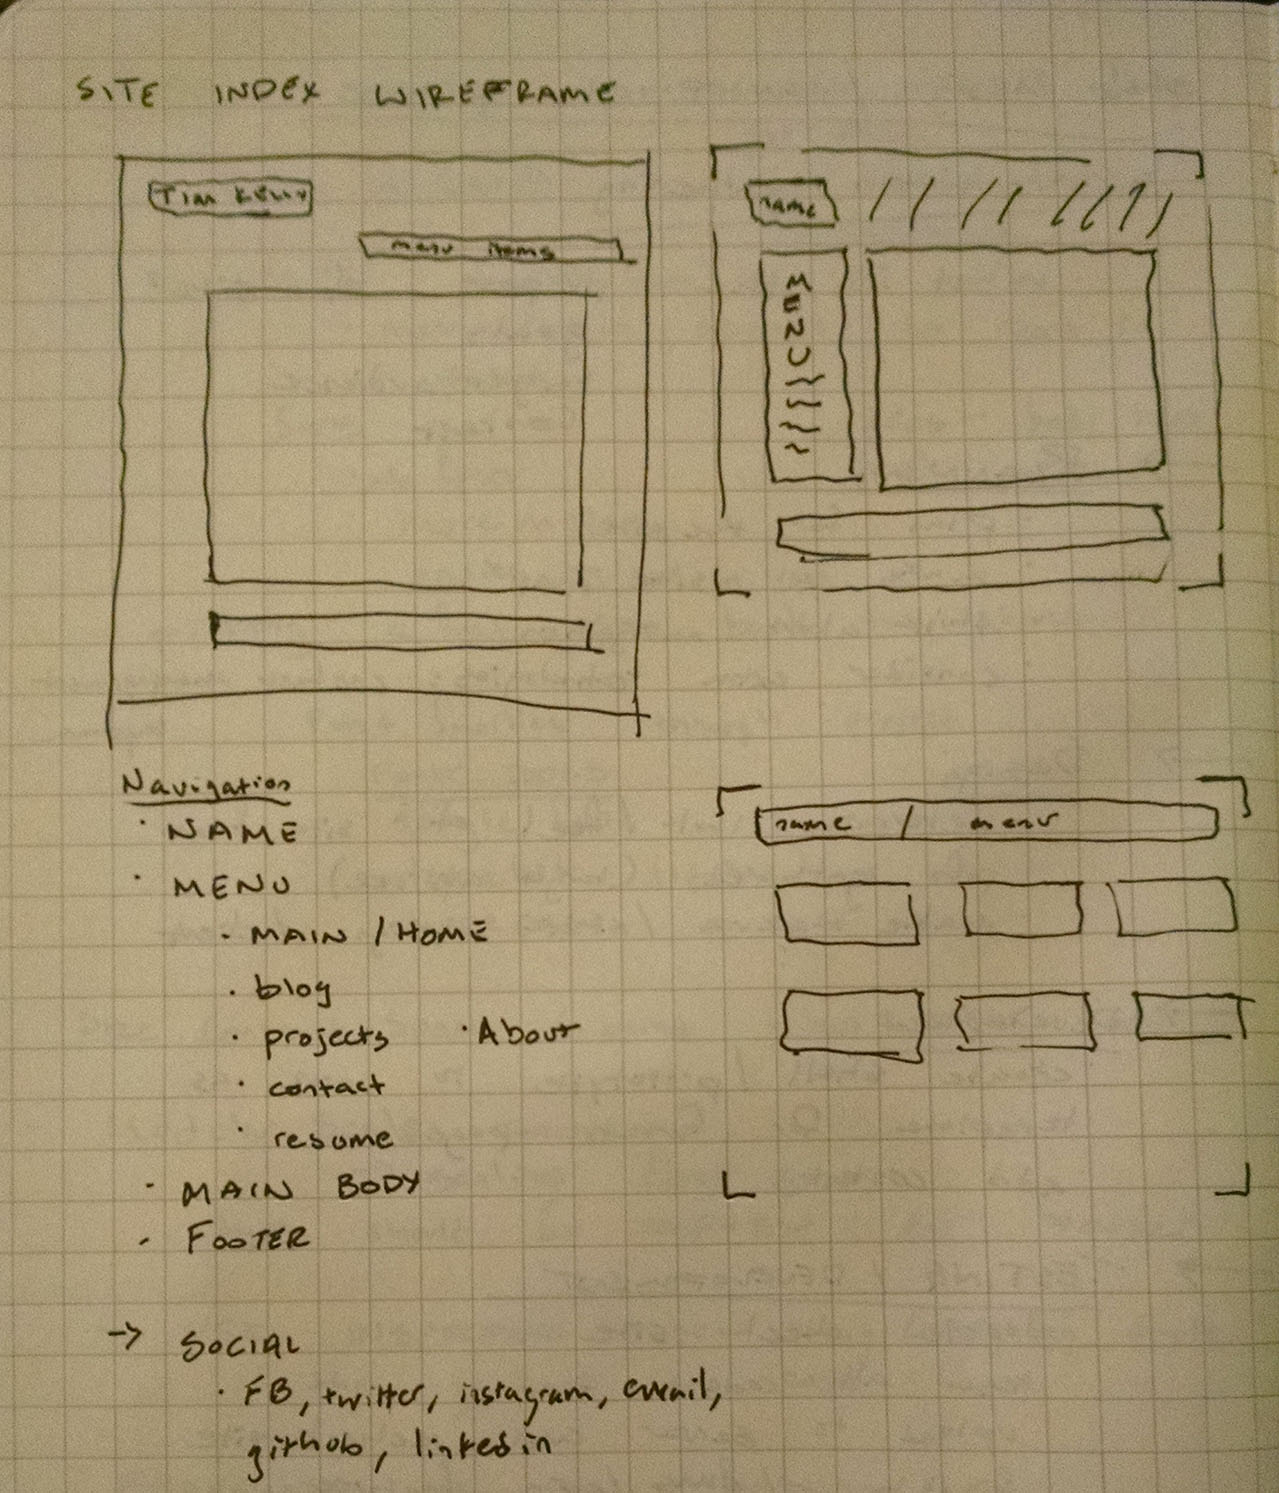 SITE INDEX WIREFRAME
Tim Kelly
menu items
name
MENU
Navigation
· NAME
· MENU
· MAIN / HOME
· blog
· projects · About
· contact
· resume
· MAIN BODY
· FOOTER
→ SOCIAL
· FB, twitter, instagram, email,
github, linkedin
name / menu